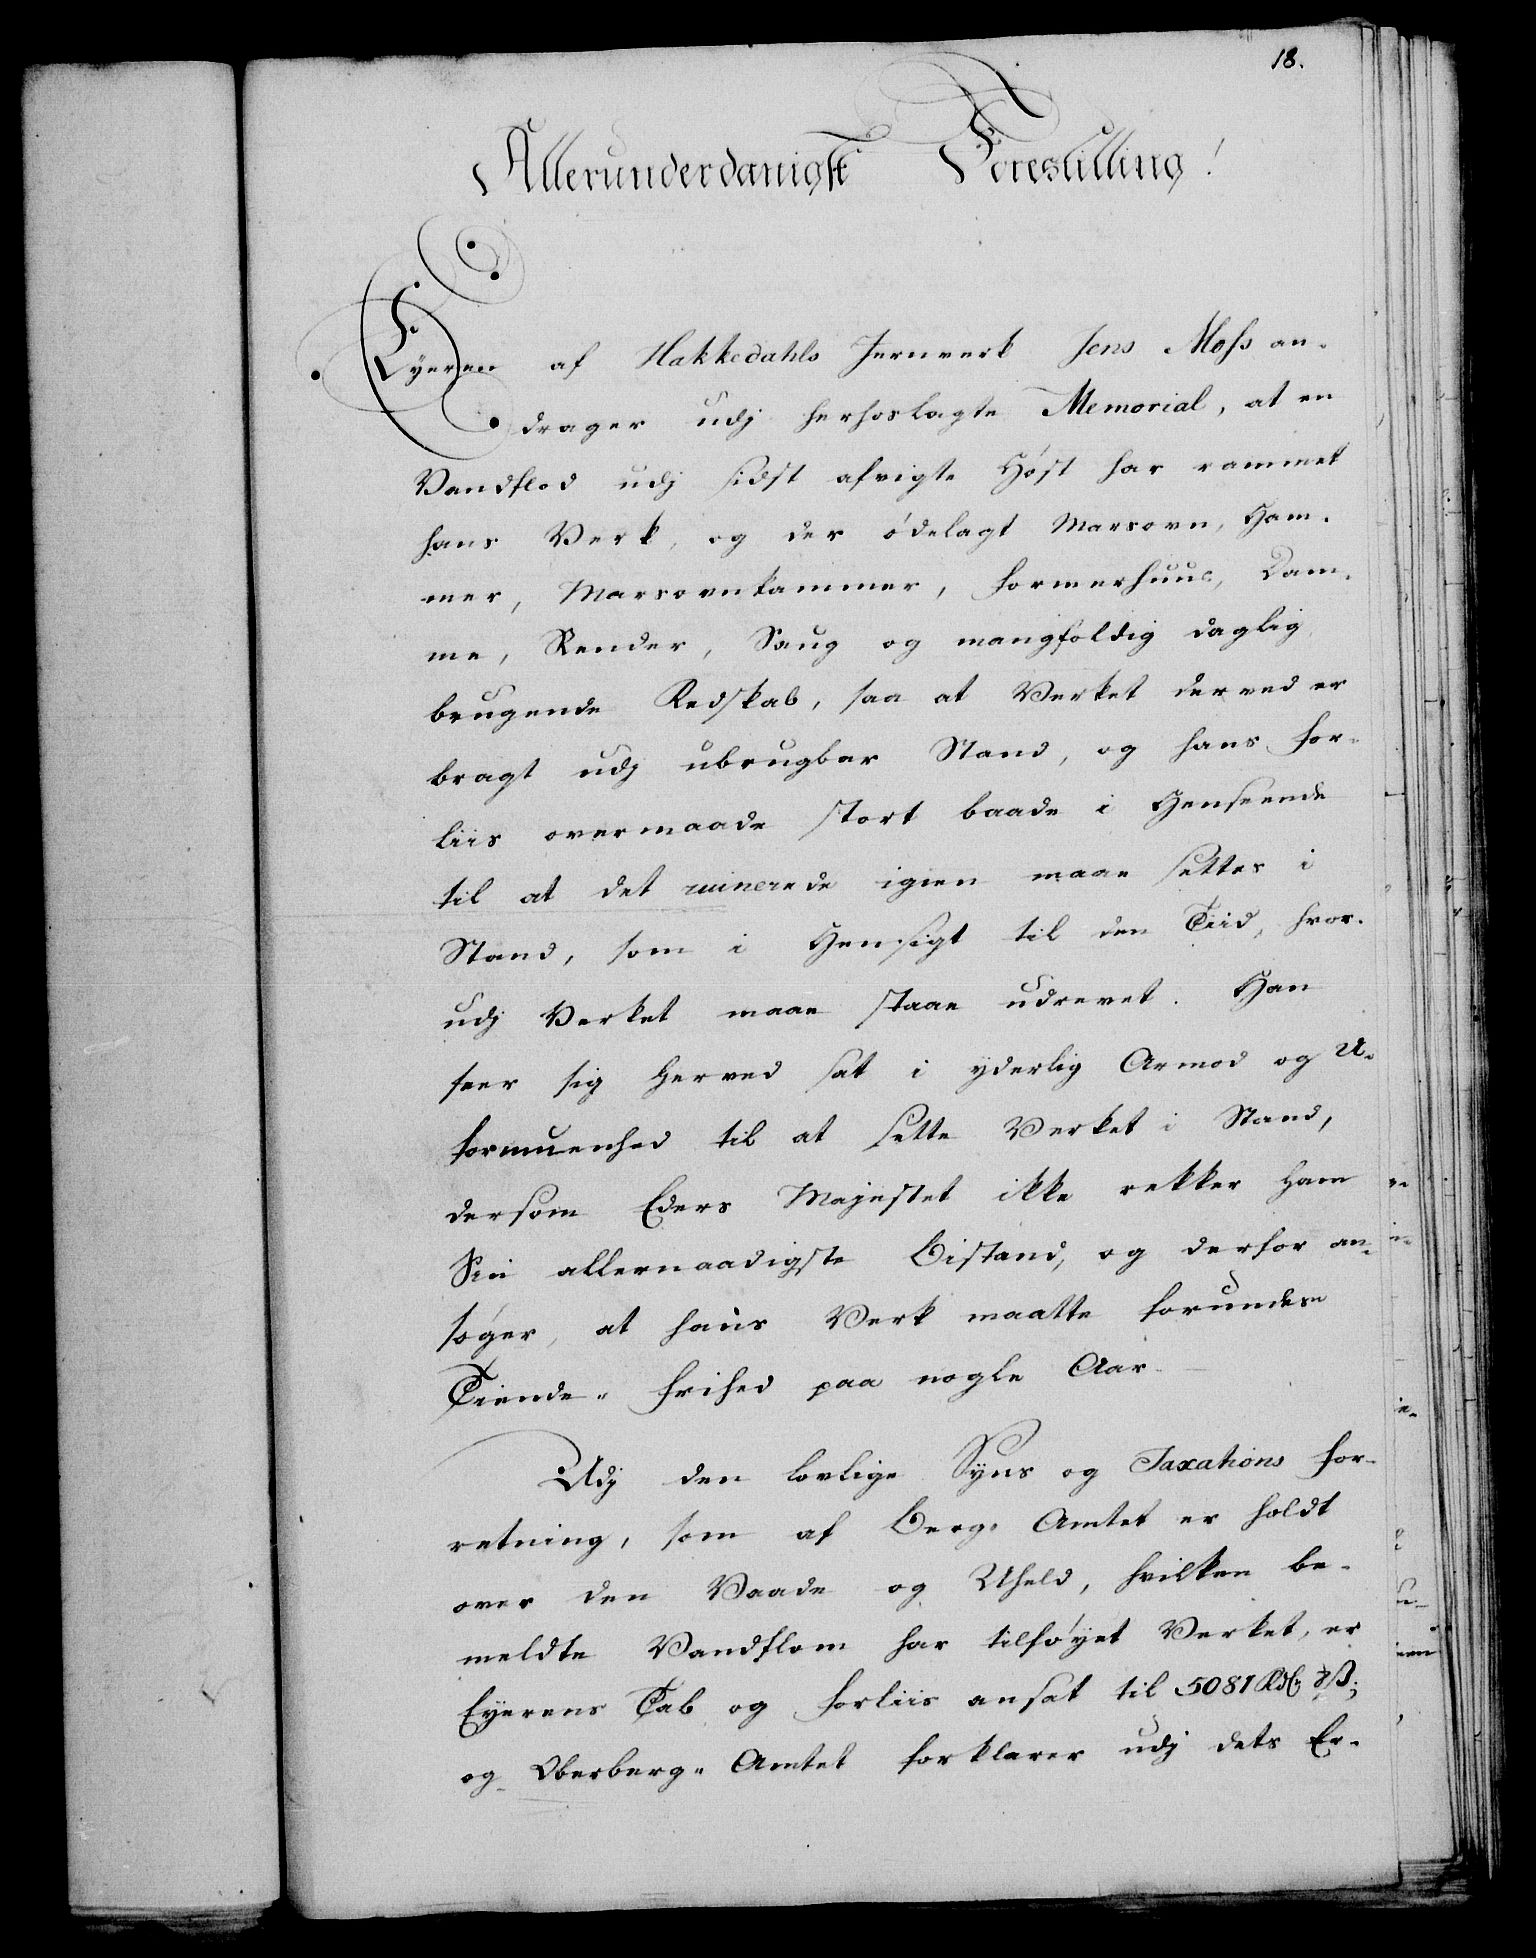 18.
Allerunderdanigst Forestilling!
Eyeren af Hakkedahls Jernverk Jens Moss an-
drager udj herhoslagte Memorial, at en
Vandflod udj sidst afvigte Høst har rammet
hans Verk, og der ødelagt Marsovn, Ham-
mer, Marsovnkammer, Formerhuus, Dam-
me, Render, Saug og mangfoldig daglig
brugende Redskab, saa at Verket derved er
bragt udj ubrugbar Stand, og hans For-
liis overmaade stort baade i Henseende
til at det ruinerede igien maae settes i
Stand, som i Hensigt til den Tiid, hvor-
udj Verket maae staae udrevet. Han
seer sig herved sat i yderlig Armod og U-
formuenhed til at sette Verket i Stand,
dersom Eders Majestet ikke rekker ham
Sin allernaadigste Bistand, og derfor an-
søger, at hans Verk maatte forundes
Tiende-frihed paa nogle Aar.
Udj den lovlige Syns og Taxations for-
retning, som af Berg-Amtet er holdt
over den Vaade og Uheld, hvilken be-
meldte Vandflom har tilføyet Verket, er
Eyerens Tab og Forliis ansat til 5081 Rdlr 8 ß;
og Oberberg-Amtet forklarer udj dets Er-